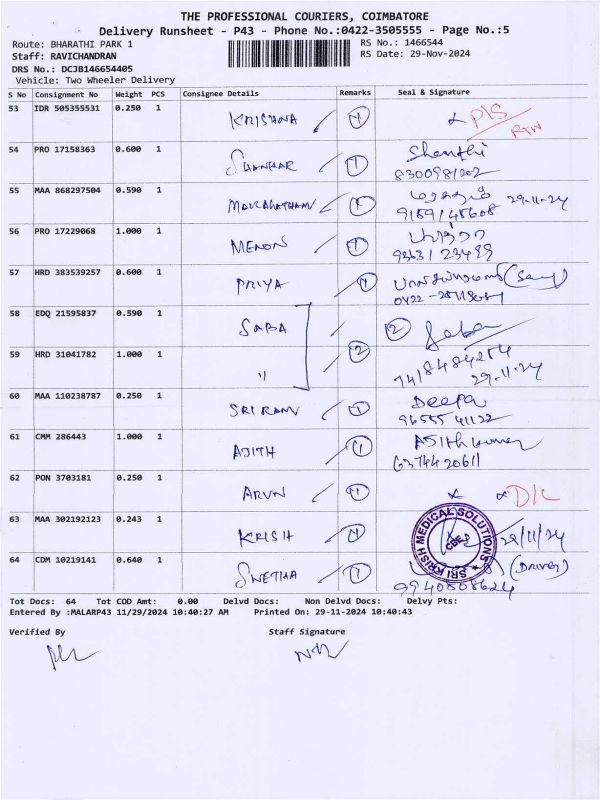 THE PROFESSIONAL COURIERS, COIMBATORE
Delivery Runsheet - P43 - Phone No.:0422-3505555 - Page No.:5
Route: BHARATHI PARK 1
RS No.: 1466544
Staff: RAVICHANDRAN
RS Date: 29-Nov-2024
DRS No.: DCJB146654405
Vehicle: Two Wheeler Delivery
S No Consignment No Weight PCS Consignee Details Remarks Seal & Signature
53 IDR 505355531 0.250 1 KRISHNA 1 P/S
RTN
54 PRO 17158363 0.600 1 SHANKAR 1 Shanthi
8300981202
55 MAA 868297504 0.590 1 MARAKATHAM 1 மரகதம் 29-11-24
9159145608
56 PRO 17229068 1.000 1 MENON 1
57 HRD 383539257 0.600 1 PRIYA 1
58 EDQ 21595837 0.590 1 SABA 2 Saba
59 HRD 31041782 1.000 1 " 2 7418484254
29-11-24
60 MAA 110238787 0.250 1 SRIRAM 1 Deepa
61 CMM 286443 1.000 1 AJITH 1 Ajithkumar
6374420611
62 PON 3703181 0.250 1 ARUN 1 D/L
63 MAA 302192123 0.243 1 KRISH 1 29/11/24
SRI KRISH MEDICAL SOLUTIONS
CBE
64 CDM 10219141 0.640 1 SWETHA 1 (Driver)
9940808624
Tot Docs: 64 Tot COD Amt: 0.00 Delvd Docs: Non Delvd Docs: Delvy Pts:
Entered By :MALARP43 11/29/2024 10:40:27 AM Printed On: 29-11-2024 10:40:43
Verified By Staff Signature